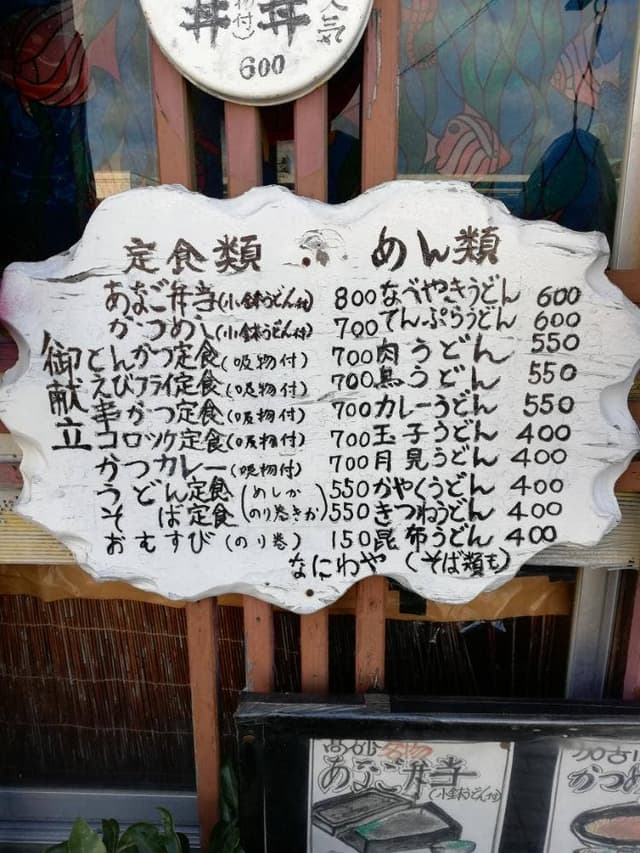 丼 物付 丼 人気
600
御献立
定食類
あなご弁当(小鉢うどん付) 800
かつめし(小鉢うどん付) 700
とんかつ定食(吸物付) 700
えびフライ定食(吸物付) 700
串かつ定食(吸物付) 700
コロッケ定食(吸物付) 700
かつカレー(吸物付) 700
うどん定食(めしか 550
そば定食 のり巻きか) 550
おむすび(のり巻) 150
めん類
なべやきうどん 600
てんぷらうどん 600
肉うどん 550
鳥うどん 550
カレーうどん 550
玉子うどん 400
月見うどん 400
かやくうどん 400
きつねうどん 400
昆布うどん 400
なにわや(そば類も)
高砂名物
あなご弁当
(小鉢うどん付)
加古
かつめ